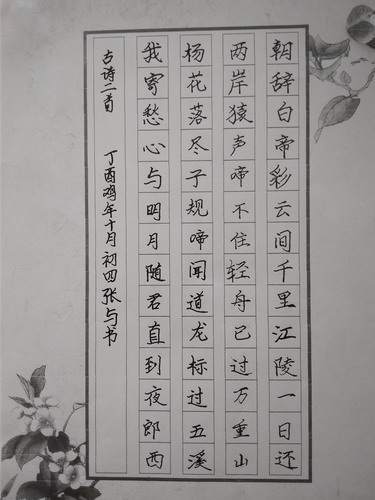 朝辞白帝彩云间千里江陵一日还
两岸猿声啼不住轻舟已过万重山
杨花落尽子规啼闻道龙标过五溪
我寄愁心与明月随君直到夜郎西
古诗二首 丁酉鸡年十月初四张与书